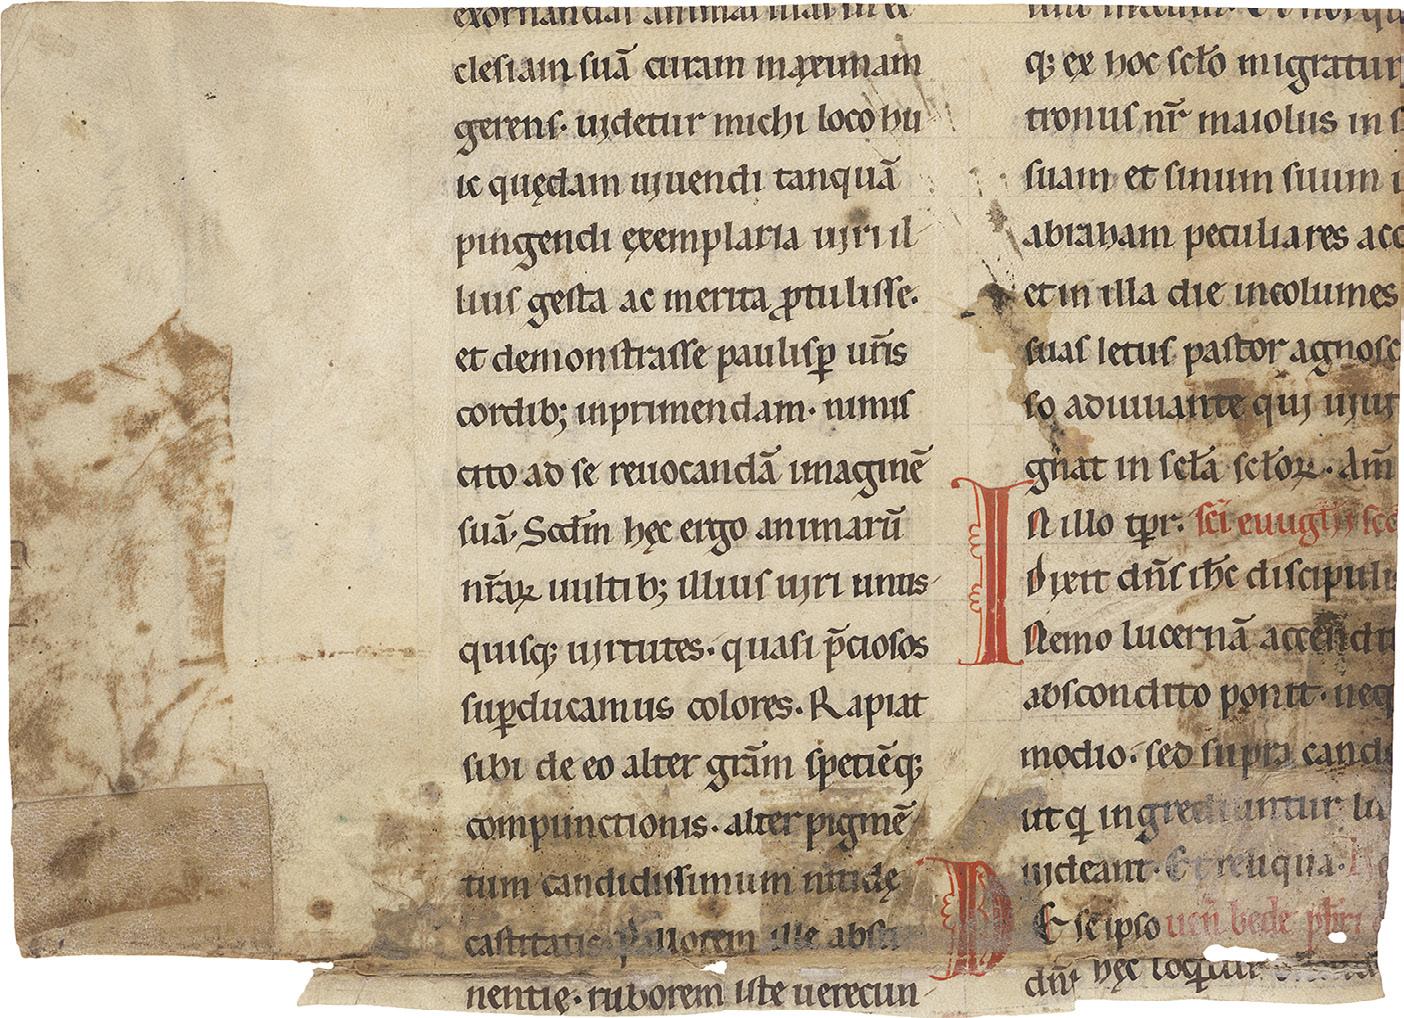 exornandas animas illas in ec
clesiam suā curam maximam
gerens· uidetur michi loco hu
ic quędam uiuendi tanquā
pingendi exemplaria uiri il
lius gesta ac merita ꝓtulisse·
et demonstrasse paulisꝑ ur̄is
cordib; inprimendam· nimis
cito ad se reuocandā imaginē
suā· Scd̄m hęc ergo animarū
nr̄aꝝ uultib; illius uiri unus
quisq; uirtutes· quasi p̄ciosos
suꝑducamus colores· Rapiat
sibi de eo alter grām spetiēq;
compunctionis· alter pigmē
tum candidissimum nitidę
castitatis· Pallorem ille absti
nentię· ruborem iste uerecun
q; ex hoc scło migratur
tronus nr̄ maiolus in s
suam et sinum suum
abraham peculiares acc
et in illa die incolumes
suas letus pastor agnosc
so adiuuante qui uiuit
gnat in scła scłoꝝ· Am̄
IN illo tꝑr· sc̄i euugl̄ii sec
Dixit dn̄s ih̄c discipulis
Nemo lucernā accendit
abscondito ponit· neq
modio· sed supra cande
ut q̇ ingrediuntur lu
uideant· Et reliqua·
DE se ipso uen̄ bede pb̄ri
dn̄s hęc loquitur